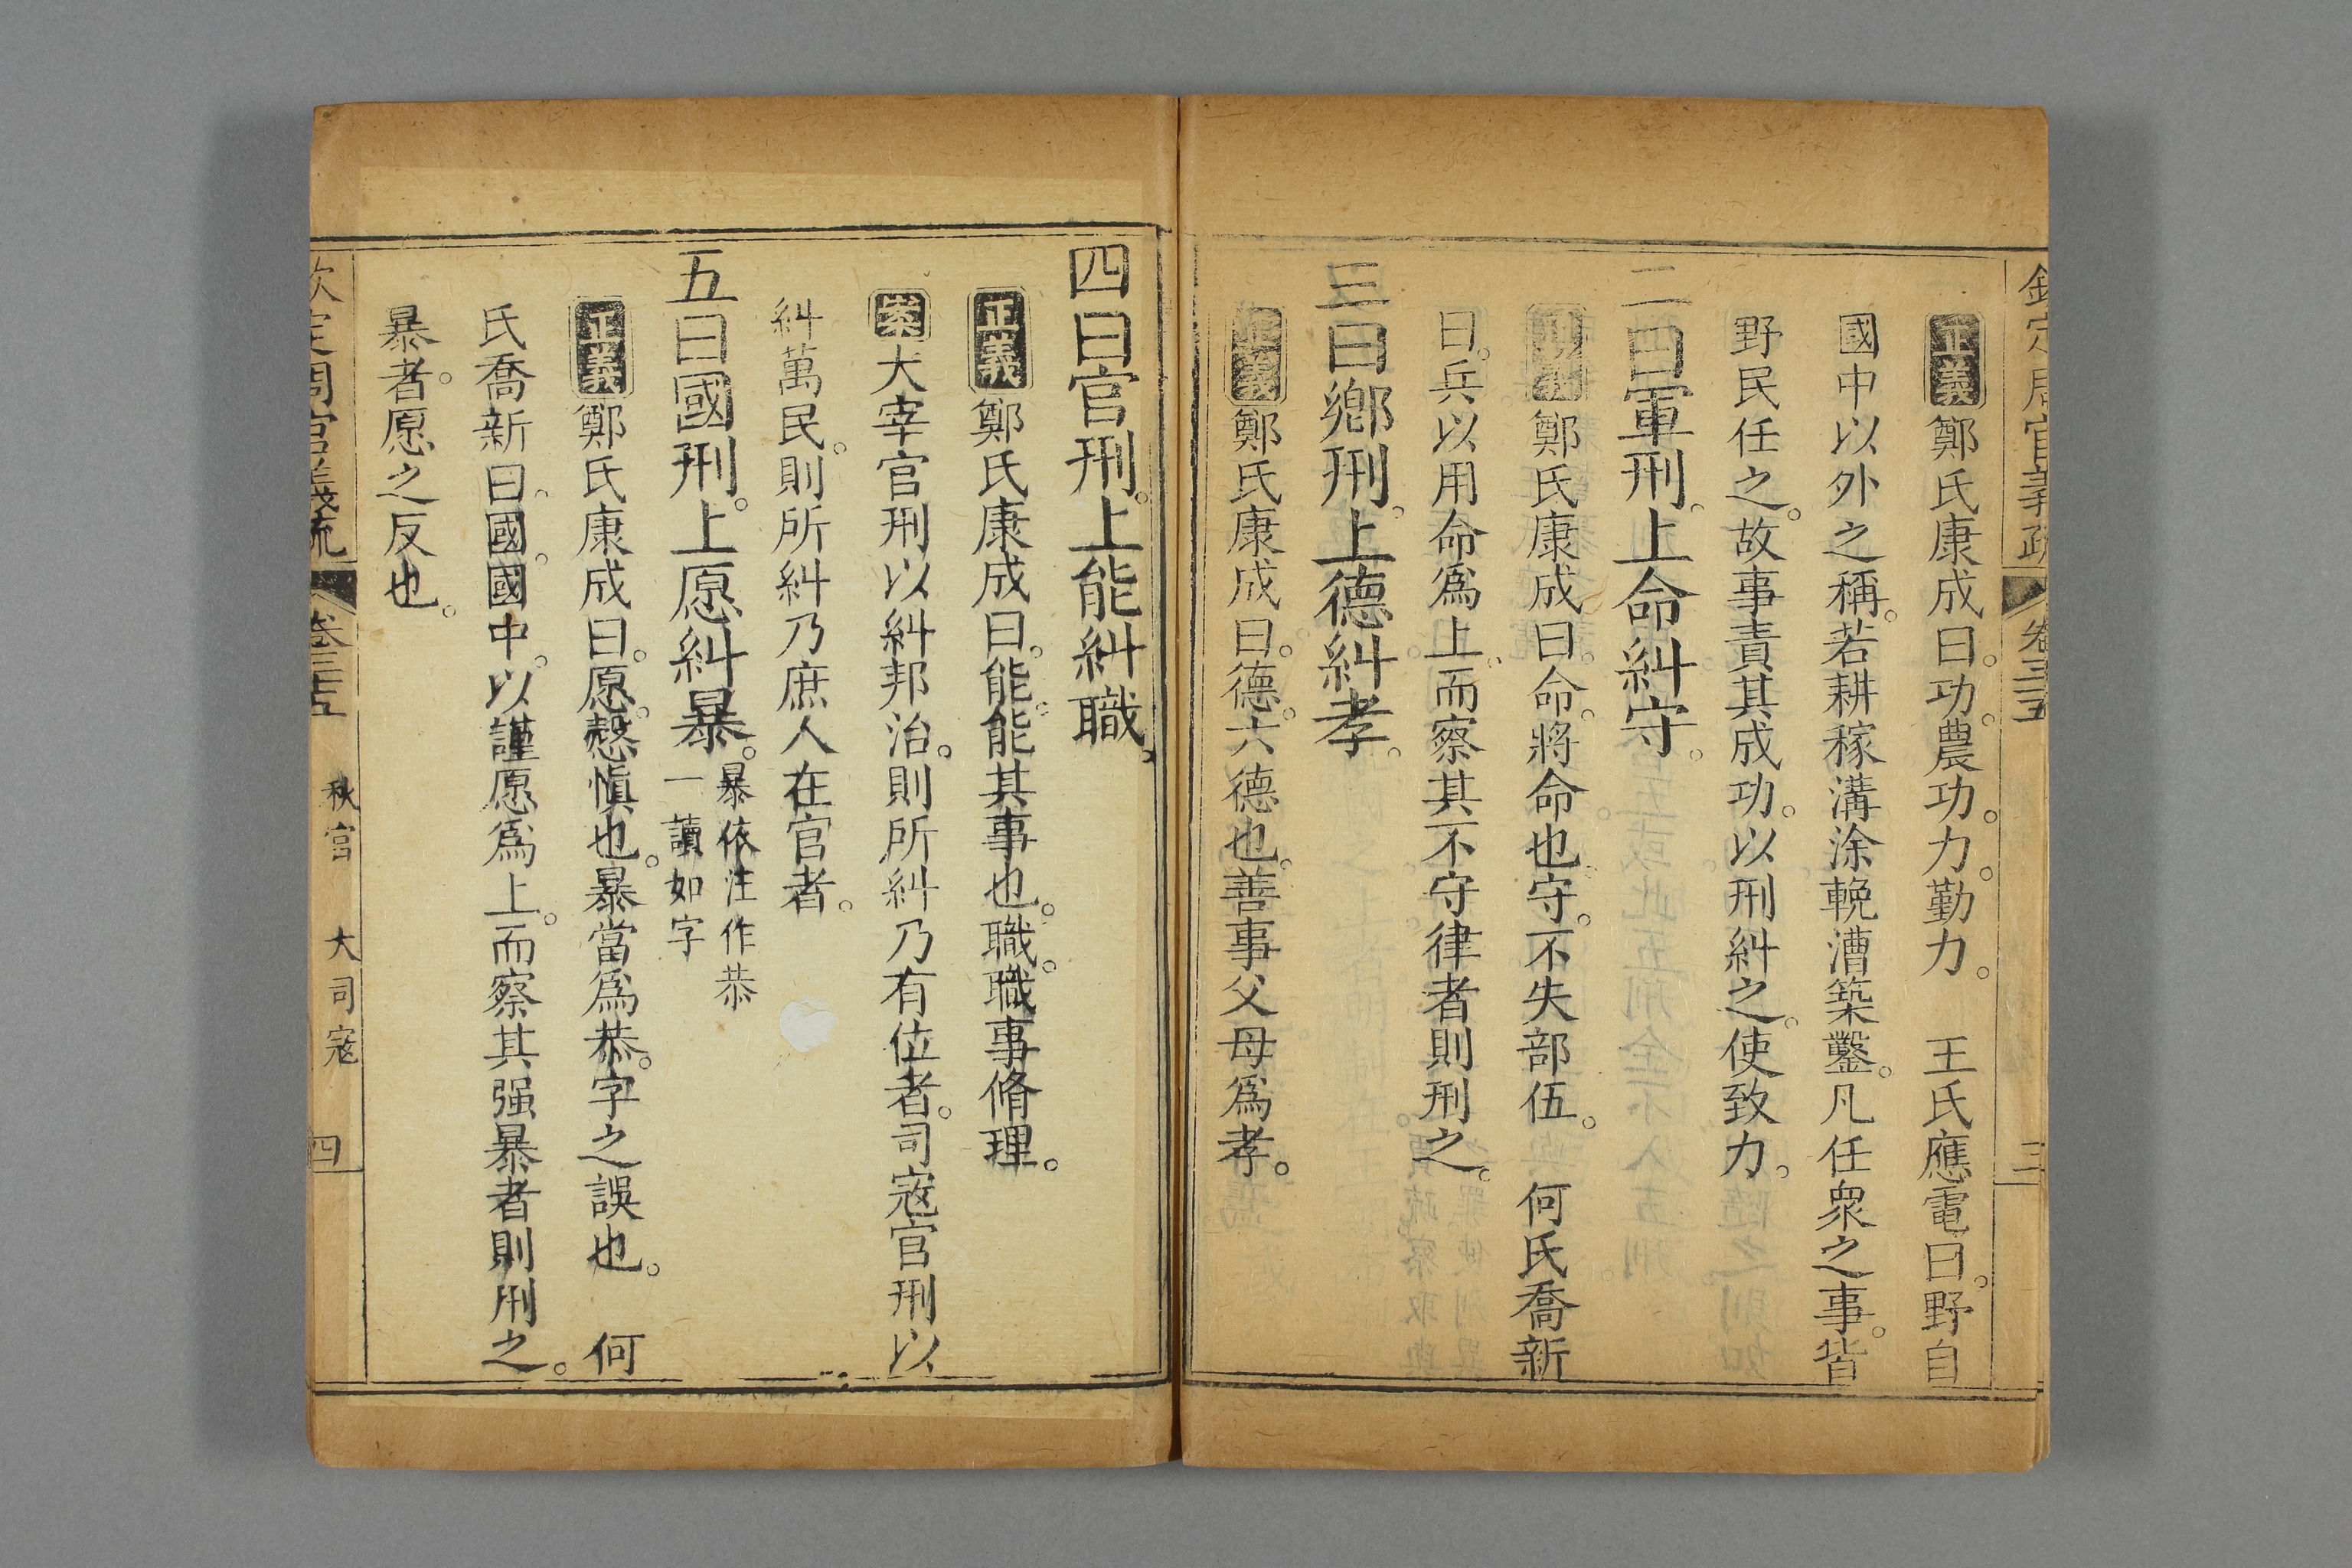 欽定周官義疏 卷三十五 三
正義鄭氏康成曰。功。農功。力。勤力。 王氏應電曰。野自
國中以外之稱。若耕稼溝涂輓漕築鑿。凡任衆之事。皆
野民任之。故事責其成功。以刑糾之。使致力。
二曰軍刑。上命糾守。
正義鄭氏康成曰。命。將命也。守。不失部伍。 何氏喬新
曰。兵以用命爲上。而察其不守律者則刑之。
三曰鄉刑。上德糾孝。
正義鄭氏康成曰。德。六德也。善事父母爲孝。
四曰官刑。上能糾職。
正義鄭氏康成曰。能。能其事也。職。職事脩理。
案大宰官刑以糾邦治。則所糾乃有位者。司寇官刑以
糾萬民。則所糾乃庶人在官者。
五曰國刑。上愿糾暴。暴依注作恭
一讀如字
正義鄭氏康成曰。愿。愨愼也。暴當爲恭。字之誤也。 何
氏喬新曰。國。國中。以謹愿爲上。而察其强暴者則刑之。
暴者。愿之反也。
欽定周官義疏 卷三十五 秋官 大司寇 四